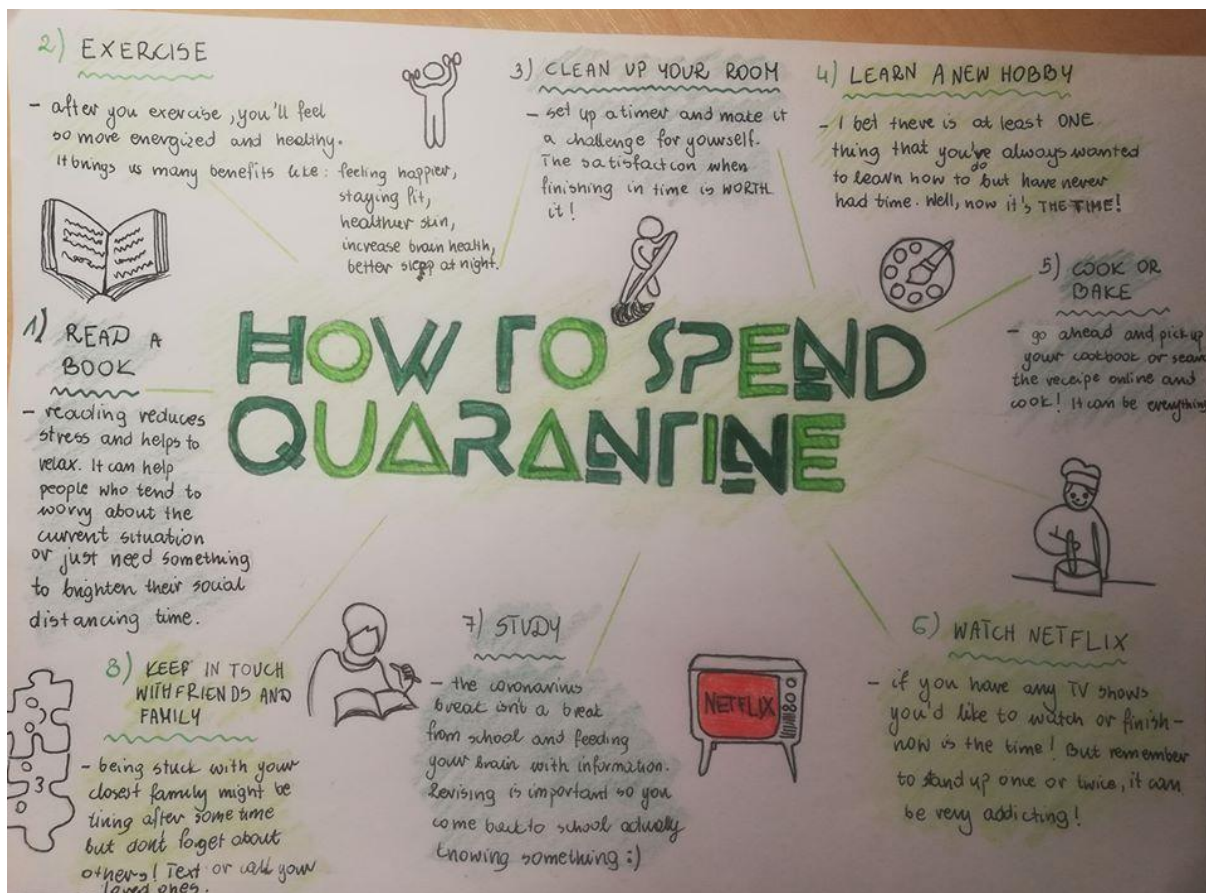 HOW TO SPEND
QUARANTINE
1) READ A
BOOK
- reading reduces
stress and helps to
relax. It can help
people who tend to
worry about the
current situation
or just need something
to brighten their social
distancing time.
2) EXERCISE
- after you exercise, you'll feel
so more energized and healthy.
It brings us many benefits like: feeling happier,
staying fit,
healthier skin,
increase brain health,
better sleep at night.
3) CLEAN UP YOUR ROOM
- set up a timer and make it
a challenge for yourself.
The satisfaction when
finishing in time is WORTH
it!
4) LEARN A NEW HOBBY
- I bet there is at least ONE
thing that you've always wanted
to learn how to do but have never
had time. Well, now it's THE TIME!
5) COOK OR
BAKE
- go ahead and pick up
your cookbook or
the receipe online and
cook! It can be everything
6) WATCH NETFLIX
- if you have any TV shows
you'd like to watch or finish -
now is the time! But remember
to stand up one or twice, it can
be very addicting!
NETFLIX
7) STUDY
- the coronavirus
break isn't a break
from school and feeding
your brain with information.
Revising is important so you
come back to school actually
knowing something :)
8) KEEP IN TOUCH
WITH FRIENDS AND
FAMILY
- being stuck with your
closest family might be
tiring after some time
but don't forget about
others! Text or call your
loved ones.